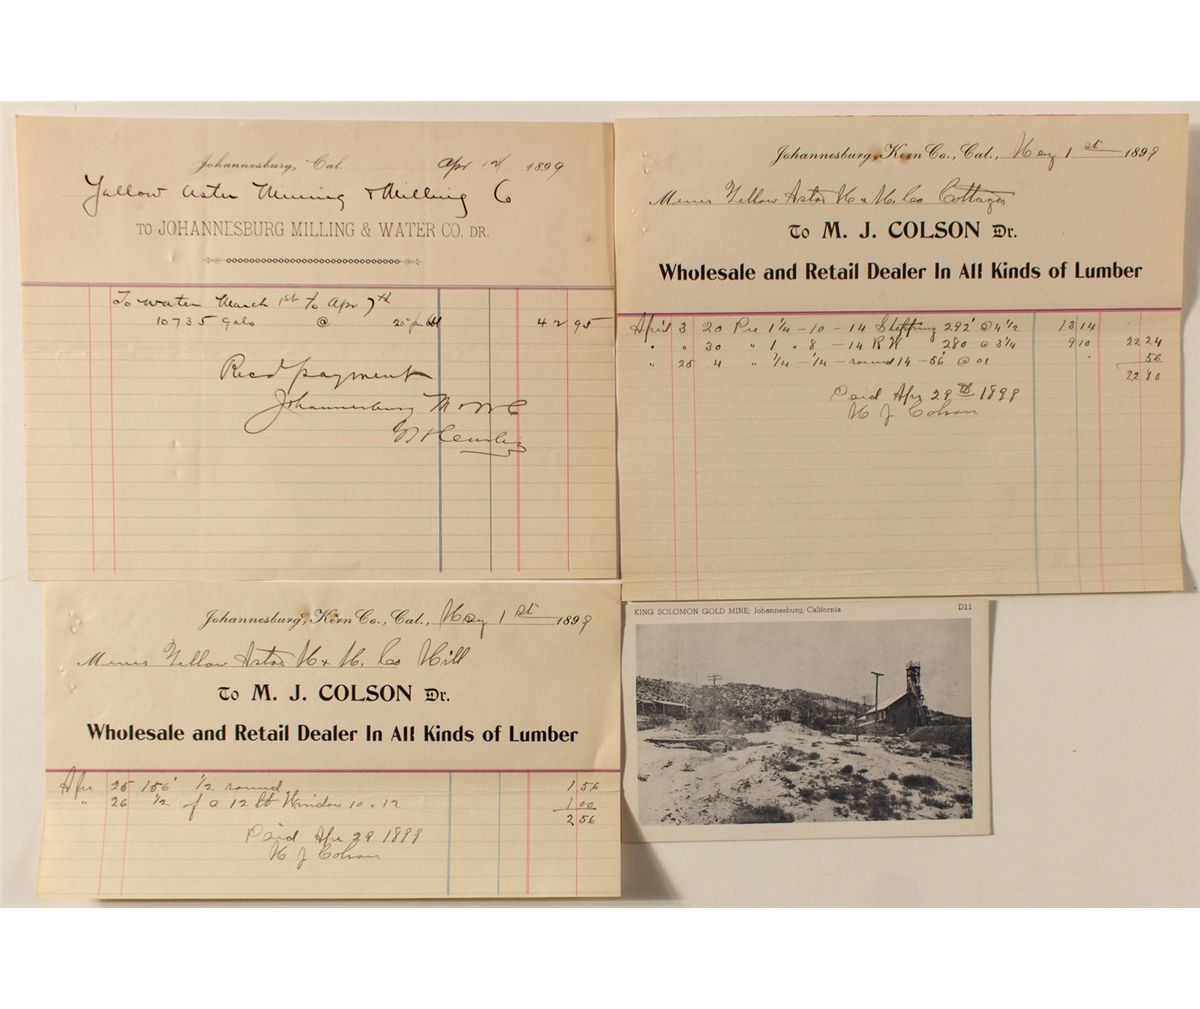 Johannesburg, Cal. Apr 1899
Yellow Aster Mining & Milling Co
TO JOHANNESBURG MILLING & WATER CO. DR.
To water March 1st to Apr 7th
10735 gals @ 42 95
Rec'd payment
Johannesburg M & W C
Johannesburg, Kern Co., Cal., May 1st 1899
Yellow Astor M & M. Co Cottages
To M. J. COLSON Dr.
Wholesale and Retail Dealer In All Kinds of Lumber
April 3 20 Pce 1¼ - 10 - 14 Stepping 292' @ 4½ 13 14
" " 30 " 1 " 8 - 14 R W 280 @ 3¼ 9 10 22 24
" 25 4 " ¼ - ¼ - round 14 - 56' @ 01 56
22 80
Paid Apr 29th 1899
M J Colson
Johannesburg, Kern Co., Cal., May 1st 1899
Yellow Astor M & M. Co Mill
To M. J. COLSON Dr.
Wholesale and Retail Dealer In All Kinds of Lumber
Apr 25 156' ½ round 1 56
" 26 ½ of a 12 Lt Window 10 x 12 1 00
2 56
Paid Apr 29 1899
M J Colson
KING SOLOMON GOLD MINE; Johannesburg, California D11